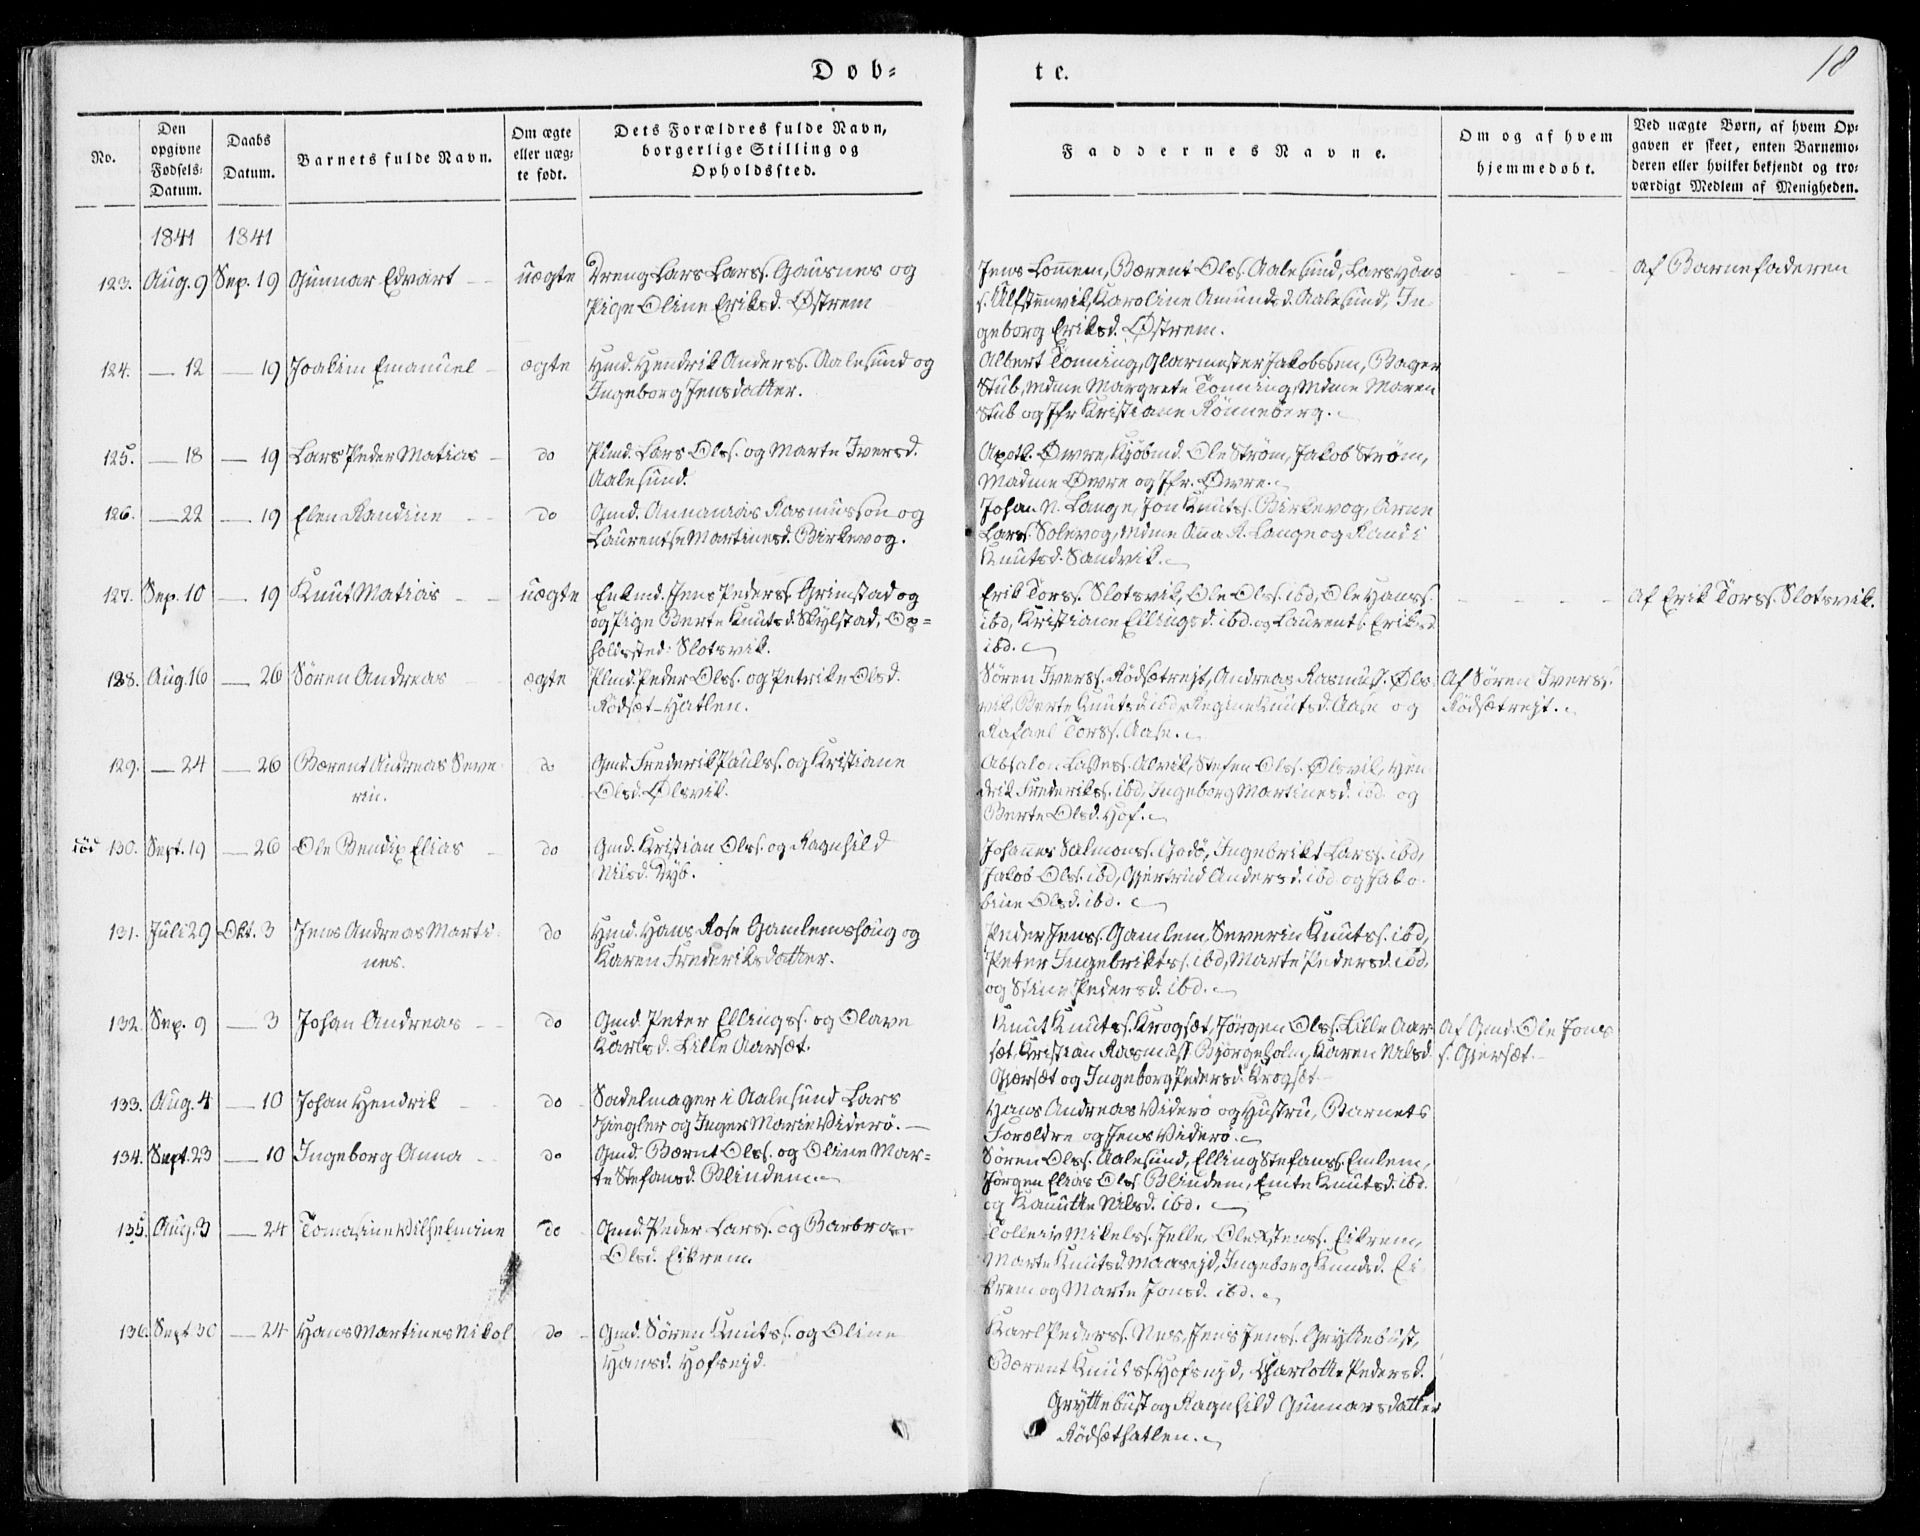 18
Døb-
te.
No.
Den opgivne Fødsels-Datum.
Daabs Datum.
Barnets fulde Navn.
Om ægte eller uæg-te født.
Dets Forældres fulde Navn, borgerlige Stilling og Opholdssted.
Faddernes Navne.
Om og af hvem hjemmedøbt.
Ved uægte Børn, af hvem Op-gaven er skeet, enten Barnemo-deren eller hvilket bekjendt og tro-værdigt Medlem af Menigheden.
1841 1841
123. Aug. 9 Sep. 19 Gunnar Edvart uægte Dreng Lars Larss. Gausnes og
Pige Oline Eriksd. Østrem
Jens Lommem, Bærent Olss. Aalesund, Lars Hans
s. Ulfstenvik, Karoline Amundsd. Aalesund, In-
geborg Eriksd. Østrem.
af Barnefaderen
124. — 12 — 19 Joakim Emanuel ægte Hmd. Hendrik Anderss. Aalesund og
Ingeborg Jensdatter.
Albert Tonning, Glarmester Jakobssen, Bager
Stub, Mdme Margrete Tonning, Mdme Maren
Stub og Jfr Kristiane Rønneberg.
125. — 18 — 19 Lars Peder Matias do Plmd. Lars Olss. og Marte Iversd.
Aalesund.
Apoth. Øvre, Kjøbmd. Ole Strøm, Jakob Strøm,
Madme Øvre og Jfr. Øvre.
126. — 22 — 19 Elen Randine do Gmd. Annanias Rasmusson og
Laurentse Martinesd. Birkevog.
Johan N. Lange, Jon Knuts. Birkevog, Arne
Larss. Solevog, Mdme Anna A. Lange og Randi
Knutsd. Sandvik.
127. Sep. 10 — 19 Knut Matias uægte Enkmd. Jens Peders. Grimstad og
og Pige Berte Knutsd. Skylstad, Op=
holdssted: Slotsvik.
Erik Torss. Slotsvik, Ole Olss. ibd, Ole Hanss.
ibd, Kristiane Ellingsd. ibd. og Laurents. Eriksd
ibd.
Af Erik Torss. Slotsvik.
128. Aug. 16 — 26 Søren Andreas ægte Plmd. Peder Olss. og Petrike Olsd.
Rødsæt-Hatlen.
Søren Iverss. Rødsætrejt, Andreas Rasmuss. Øls-
vik, Berte Knutsd. ibd, Regine Knutsd. Aase og
Rafael Torss. Aase.
Af Søren Iverss.
Rødsætrejt.
129. — 24 — 26 Bærent Andreas Seve-
rin.
do Gmd. Frederik Paulss. og Kristiane
Olsd. Ølsvik.
Absalon Lasses. Alvik, Stefen Olss. Ølsvik, Hen-
drik Frederikss. ibd, Ingeborg Martinesd. ibd. og
Berte Olsd. Hof.
død 130. Sept. 19 — 26 Ole Bendix Elias do Gmd. Kristian Olss. og Ragnhild
Nilsd. Dyb.
Johannes Salmonss. Godø, Ingebrikt Larss. ibd,
Jakob Olss. ibd, Gjertrud Andersd. ibd og Jako-
bine Olsd. ibd.
131. Juli 29 Okt. 3 Jens Andreas Marti-
nes.
do Hmd. Hans Rose Gamlemshoug og
Karen Frederiksdatter.
Peder Jenss. Gamlem, Severin Knutss. ibd,
Peter Ingebriktss. ibd, Marte Pedersd. ibd,
og Stine Pedersd. ibd.
132. Sep. 9 — 3 Johan Andreas do Gmd. Peter Ellings. og Olave
Karlsd. Lille Aarsæt.
Knut Knutss. Krogsæt, Jørgen Olss. Lille Aar-
sæt, Kristian Rasmuss Bjørgeholm, Karen Nilsd.
Gjersæt og Ingeborg Pedersd. Krogsæt
Af Gmd. Ole Jons
s. Gjersæt.
133. Aug. 4 — 10 Johan Hendrik do Sadelmager i Aalesund Lars
Ziegler og Inger Marie Viderø.
Hans Andreas Viderø og Hustru, Barnets
Forældre og Jens Viderø.
134. Sept. 23 — 10 Ingeborg Anna do Gmd. Bærnt Olss. og Oline Mar=
te Stefansd. Blindem.
Søren Olss. Aalesund, Elling Stefanss. Emlem,
Jørgen Elias Olss Blindem, Knutsd. ibd.
og Kanutte Nilsd. ibd.
135. Aug. 3 — 24 Tomasine Wilhelmine do Gmd. Peder Larss. og Barbra
Olsd. Eikrem.
Tolleiv Mikelss. Jelle, Ole Stenss. Eikrem,
Marte Knutsd. Maasejd, Ingeborg Knudsd. Ei-
krem og Marte Jonsd. ibd.
136. Sept 30 — 24 Hans Martines Nikol do Gmd. Søren Knutss. og Oline
Hansd. Hofsejd.
Karl Peders. Nes, Jens Jenss. Gryttebust,
Bærent Knutss. Hofsejd, Charlotte Pedersd.
Gryttebust og Ragnhild Gunnarsdatter
Rødsæthatlen.